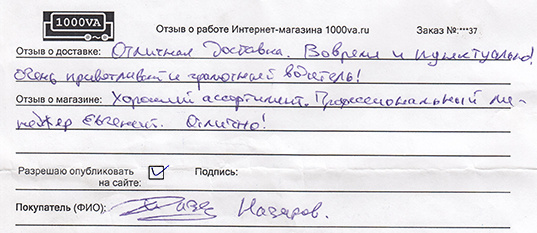 1000VA
Отзыв о работе Интернет-магазина 1000va.ru Заказ №:***37
Отзыв о доставке: Отличная доставка. Вовремя и пунктуально!
Очень приветливый и грамотный водитель!
Отзыв о магазине: Хороший ассортимент. Профессиональный ме-
неджер Евгений. Отлично!
Разрешаю опубликовать Подпись:
на сайте:
Покупатель (ФИО): Назаров.